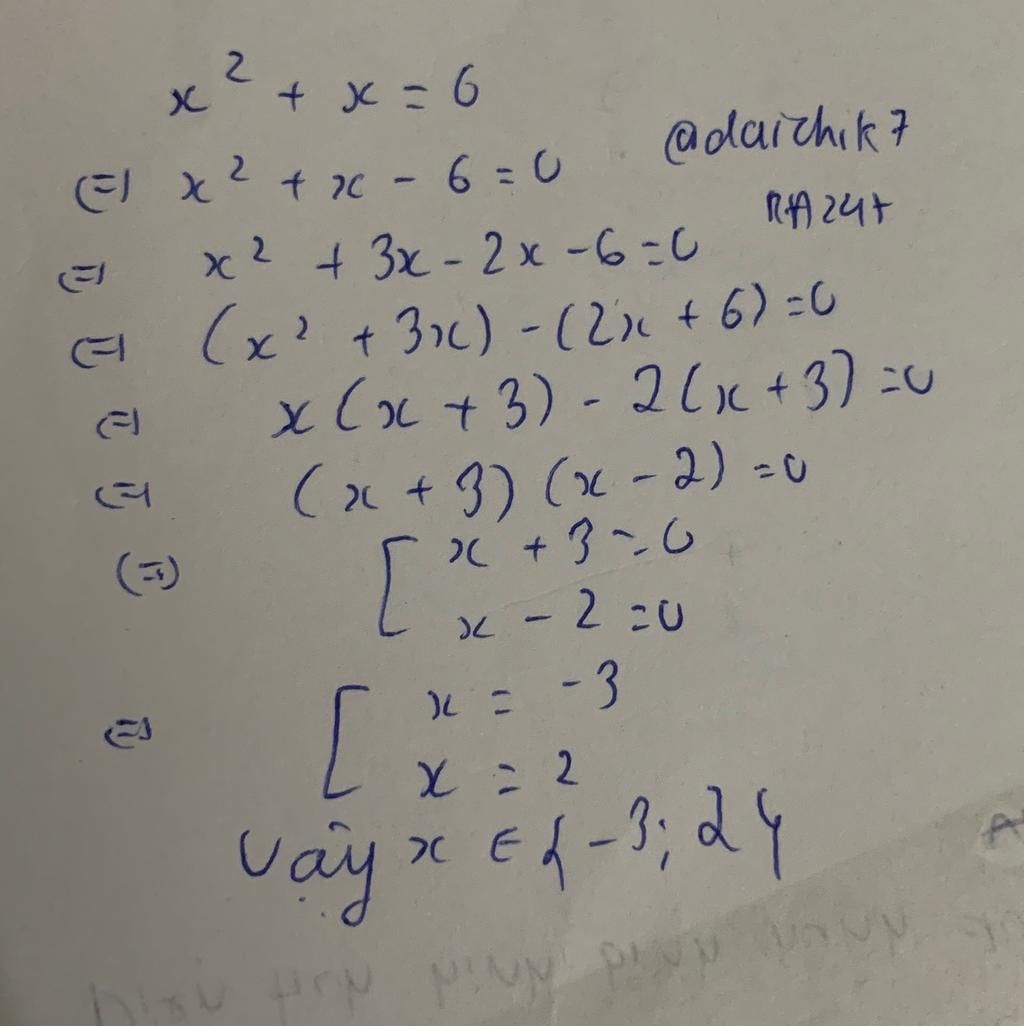 x² + x = 6
@daichik7
⇔ x² + x - 6 = 0
RA24+
⇔ x² + 3x - 2x - 6 = 0
⇔ (x² + 3x) - (2x + 6) = 0
⇔ x(x + 3) - 2(x + 3) = 0
⇔ (x + 3)(x - 2) = 0
⇔ [ x + 3 = 0
x - 2 = 0
⇔ [ x = -3
x = 2
Vậy x ∈ {-3; 2}